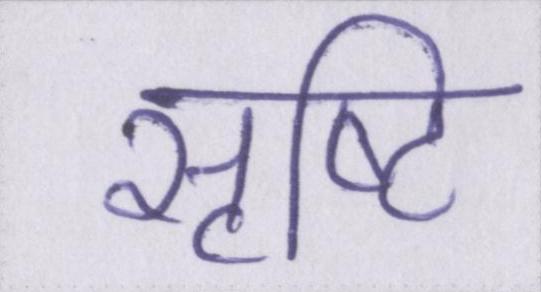 सृष्टि